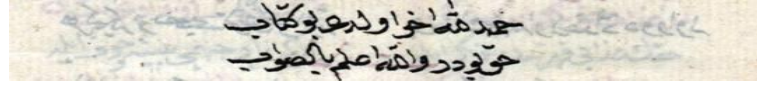 حمد لله اخر اولدى بو كتاب
حق بودر والله اعلم بالصواب